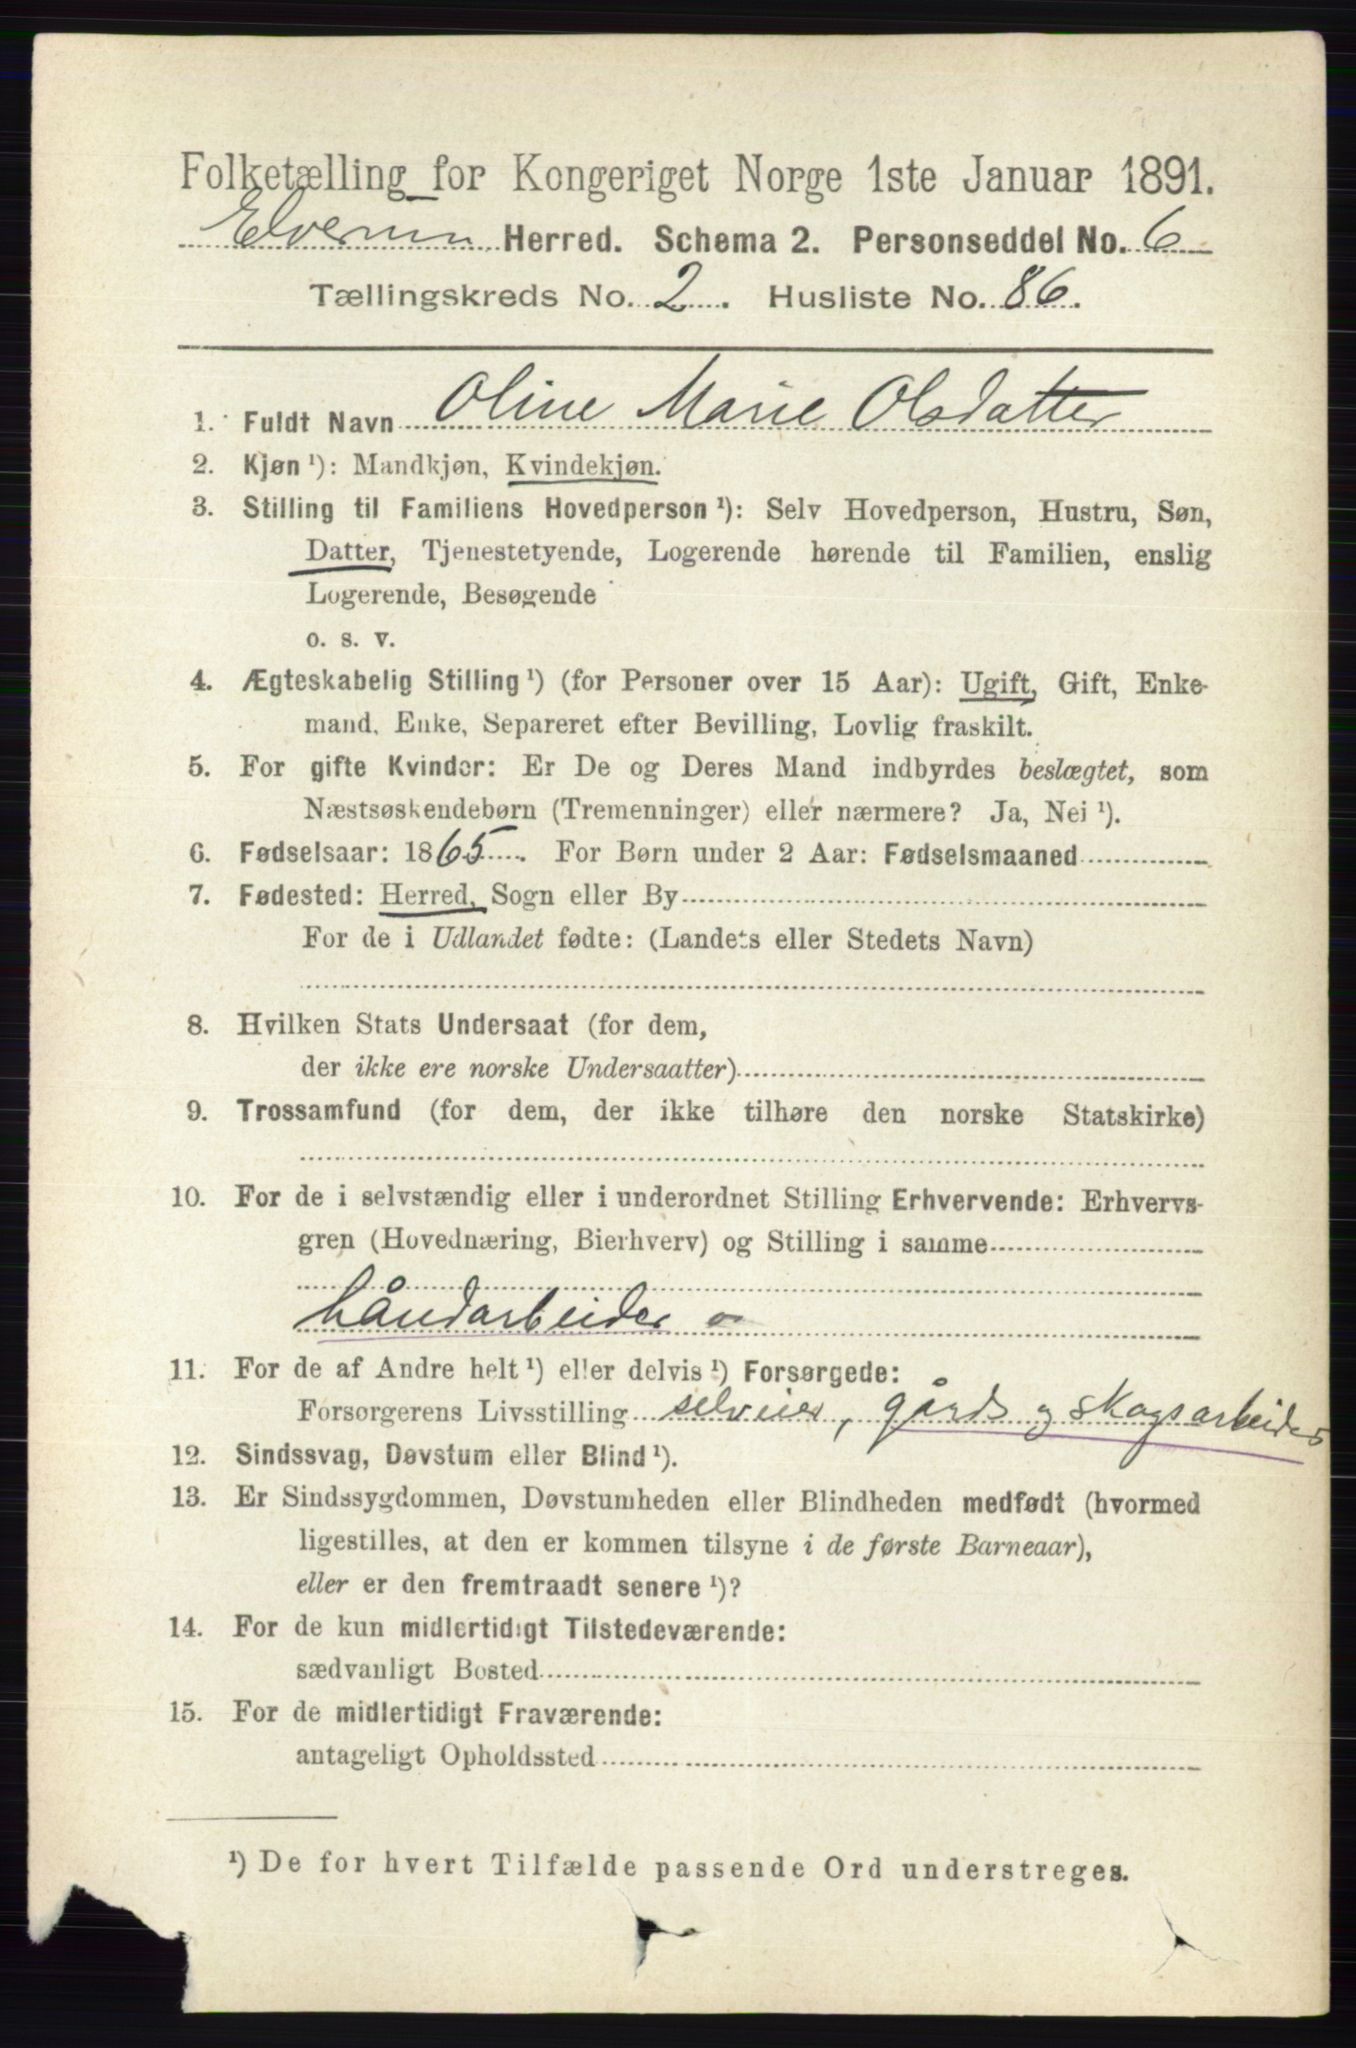 Folketælling for Kongeriget Norge 1ste Januar 1891.
Elverum Herred. Schema 2. Personseddel No. 6
Tællingskreds No. 2. Husliste No. 86.
1. Fuldt Navn Oline Marie Olsdatter
2. Kjøn ¹): Mandkjøn, Kvindekjøn.
3. Stilling til Familiens Hovedperson ¹): Selv Hovedperson, Hustru, Søn,
Datter, Tjenestetyende, Logerende hørende til Familien, enslig
Logerende, Besøgende
o. s. v.
4. Ægteskabelig Stilling ¹) (for Personer over 15 Aar): Ugift, Gift, Enke-
mand, Enke, Separeret efter Bevilling, Lovlig fraskilt.
5. For gifte Kvinder: Er De og Deres Mand indbyrdes beslægtet, som
Næstsøskendebørn (Tremenninger) eller nærmere? Ja, Nei ¹).
6. Fødselsaar: 1865. For Børn under 2 Aar: Fødselsmaaned
7. Fødested: Herred, Sogn eller By
For de i Udlandet fødte: (Landets eller Stedets Navn)
8. Hvilken Stats Undersaat (for dem,
der ikke ere norske Undersaatter)
9. Trossamfund (for dem, der ikke tilhøre den norske Statskirke)
10. For de i selvstændig eller i underordnet Stilling Erhvervende: Erhvervs-
gren (Hovednæring, Bierhverv) og Stilling i samme
håndarbeider
11. For de af Andre helt ¹) eller delvis ¹) Forsørgede:
Forsørgerens Livsstilling selveier, gårds og skogsarbeider
12. Sindssvag, Døvstum eller Blind ¹).
13. Er Sindssygdommen, Døvstumheden eller Blindheden medfødt (hvormed
ligestilles, at den er kommen tilsyne i de første Barneaar),
eller er den fremtraadt senere ¹)?
14. For de kun midlertidigt Tilstedeværende:
sædvanligt Bosted
15. For de midlertidigt Fraværende:
antageligt Opholdssted
¹) De for hvert Tilfælde passende Ord understreges.